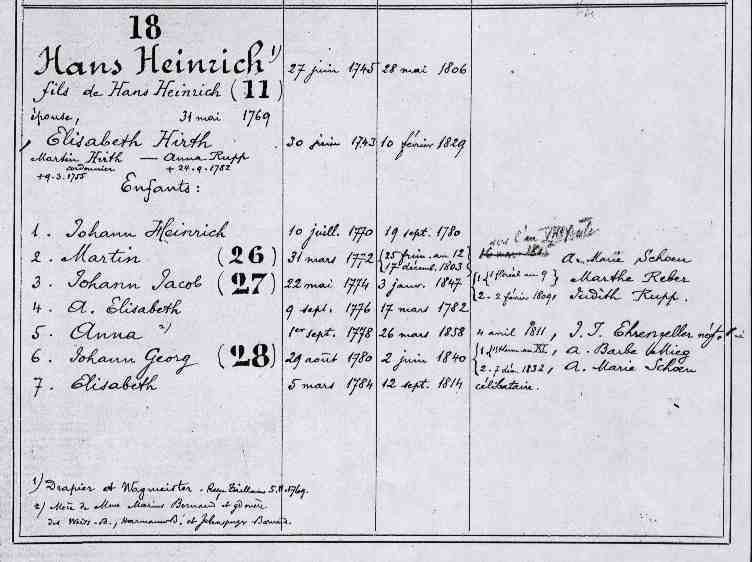 18
Hans Heinrich 1) 27 juin 1745 28 mai 1806
fils de Hans Heinrich (11)
épouse, 31 mai 1769
Elisabeth Hirth 30 juin 1743 10 février 1829
Martin Hirth — Anna Rupp
cordonnier + 24.9.1782
+ 9.3.1755
Enfants:
1. Johann Heinrich 10 juill. 1770 19 sept. 1780
2. Martin (26) 31 mars 1772 { 25 frim. an 12 vers l'an A. Marie Schoen
17 décemb. 1803 }
3. Johann Jacob (27) 22 mai 1774 3 janv. 1847 { 1. an 9 } Marthe Reber
2. 2 février 1809, Judith Rupp.
4. A. Elisabeth 9 sept. 1776 17 mars 1782
5. Anna 2) 1er sept. 1778 26 mars 1858 4 avril 1811, J. J. Ehrenzeller négt.
6. Johann Georg (28) 29 août 1780 2 juin 1840 { 1. an XI, A. Barbe Mieg
2. 7 déc. 1832, A. Marie Schoen
7. Elisabeth 5 mars 1784 12 sept. 1814 célibataire.
1) Drapier et Wagmeister - 1769.
2) Mère de Mme Marius Bernard et
des et Bernard.